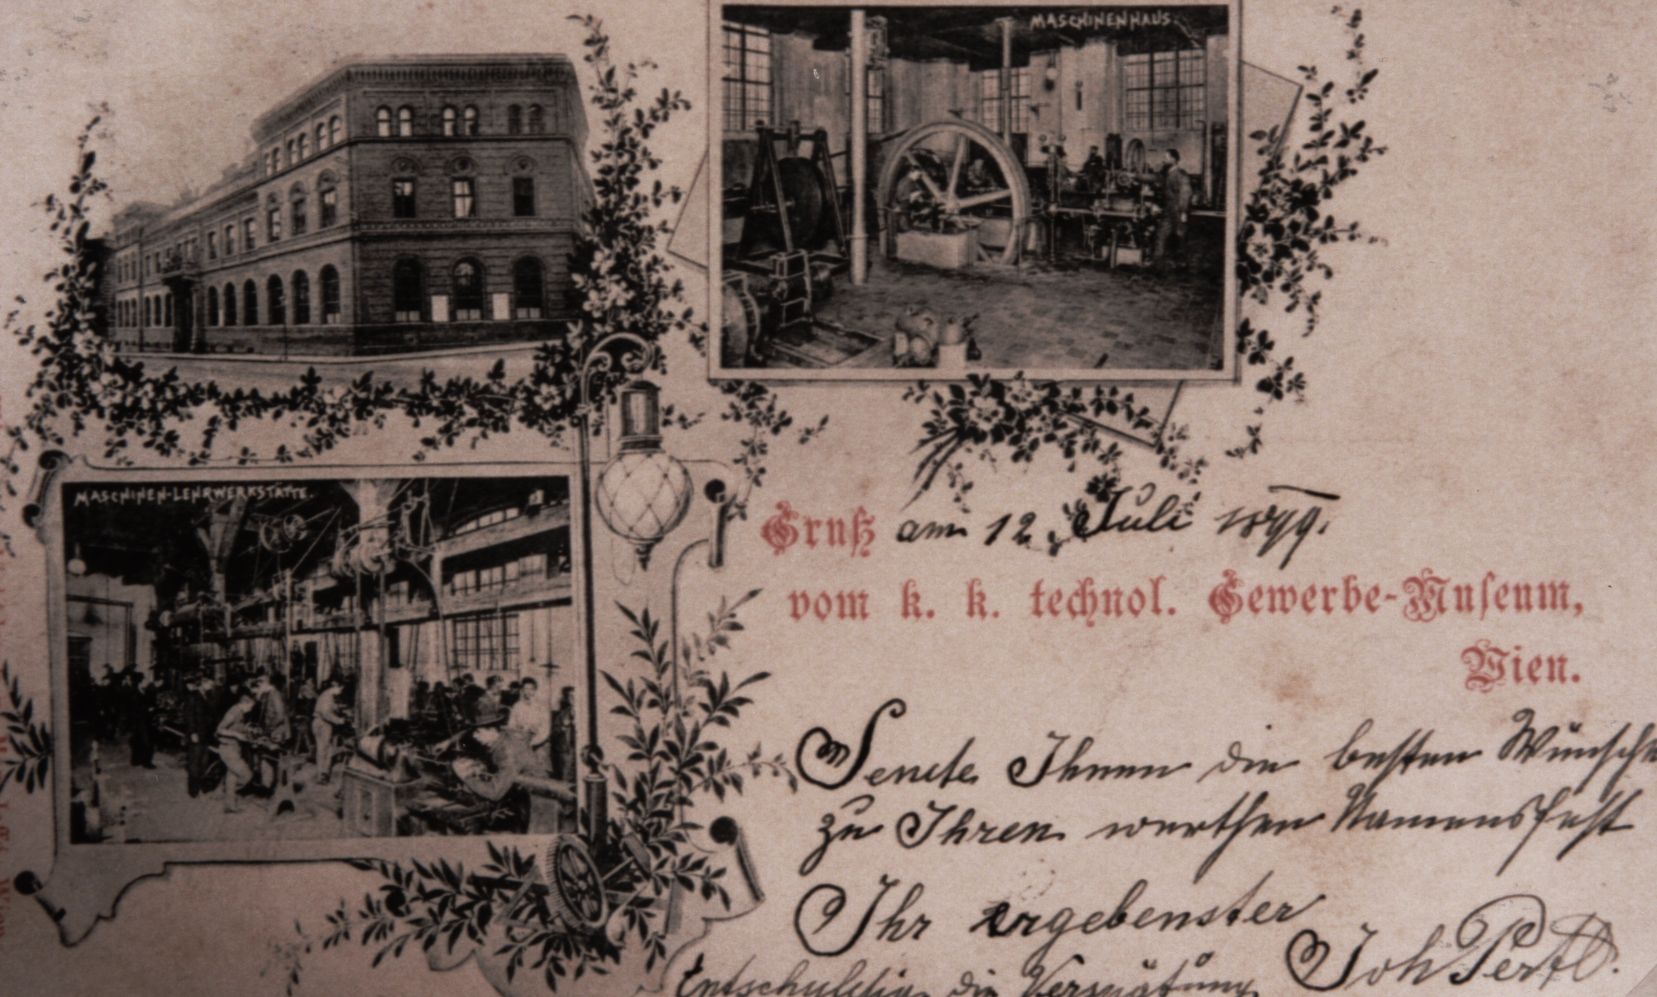 MASCHINENHAUS.
MASCHINEN-LEHRWERKSTÄTTE.
Gruß am 12. Juli 1899.
vom k. k. technol. Gewerbe-Museum,
Wien.
Sende Ihnen die besten Wünsche
zu Ihren werthen Namensfest
Ihr ergebenster
Joh Pertl.
Entschuldig. die Verspätung